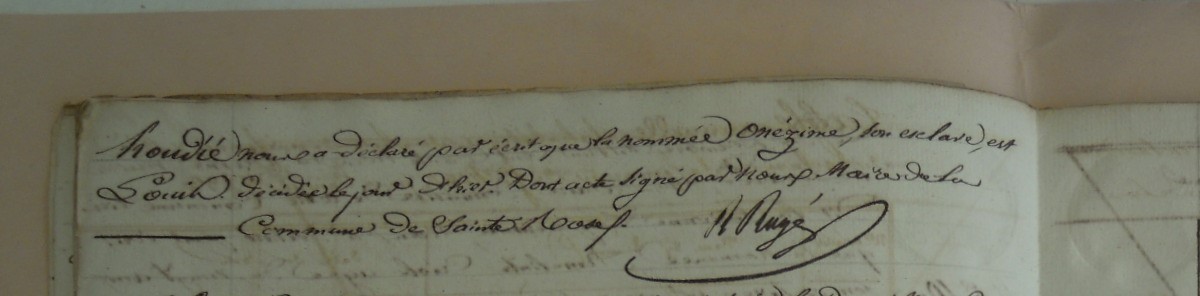 houdié nous a déclaré par écrit que la nommée Onézime, son esclave, est
décédée le jour d'hier. Dont acte signé par Nous Maire de la
Commune de Sainte Rose.